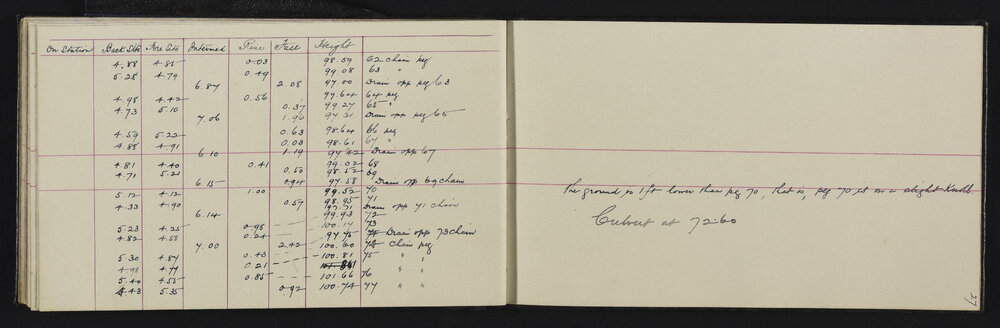 On Station Back Site Fore Site Intermed Rise Fall Height
4.88 4.85 0.03 98.59 62 chain peg
5.28 4.79 0.49 99.08 63 "
6.87 2.08 97.00 Drain opp peg 63
4.98 4.42 0.56 99.64 64 peg
4.73 5.10 0.37 99.27 65 "
7.06 1.96 97.31 Drain opp peg 65
4.59 5.22 0.63 98.64 66 peg
4.88 4.91 0.03 98.61 67 "
6.10 1.19 97.42 Drain opp 67
4.81 4.40 0.41 99.02 68
4.71 5.21 0.50 98.52 69
6.15 0.94 97.58 Drain opp 69 chain
5.12 4.12 1.00 99.52 70
4.33 4.90 0.57 98.95 71
6.14 97.71 Drain opp 71 chain
99.93 72
5.23 4.25 0.98 100.17 73
4.82 4.58 0.24 97.75 74 Drain opp 73 chain
7.00 2.42 100.60 74 chain peg
5.30 4.87 0.43 100.81 75 " "
4.98 4.77 0.21 " "
5.40 4.55 0.85 101.66 76 " "
4.43 5.35 0.92 100.74 77 " "
The ground is 1ft lower than peg 70, that is, peg 70 is on a slight knoll.
Culvert at 72.60
27